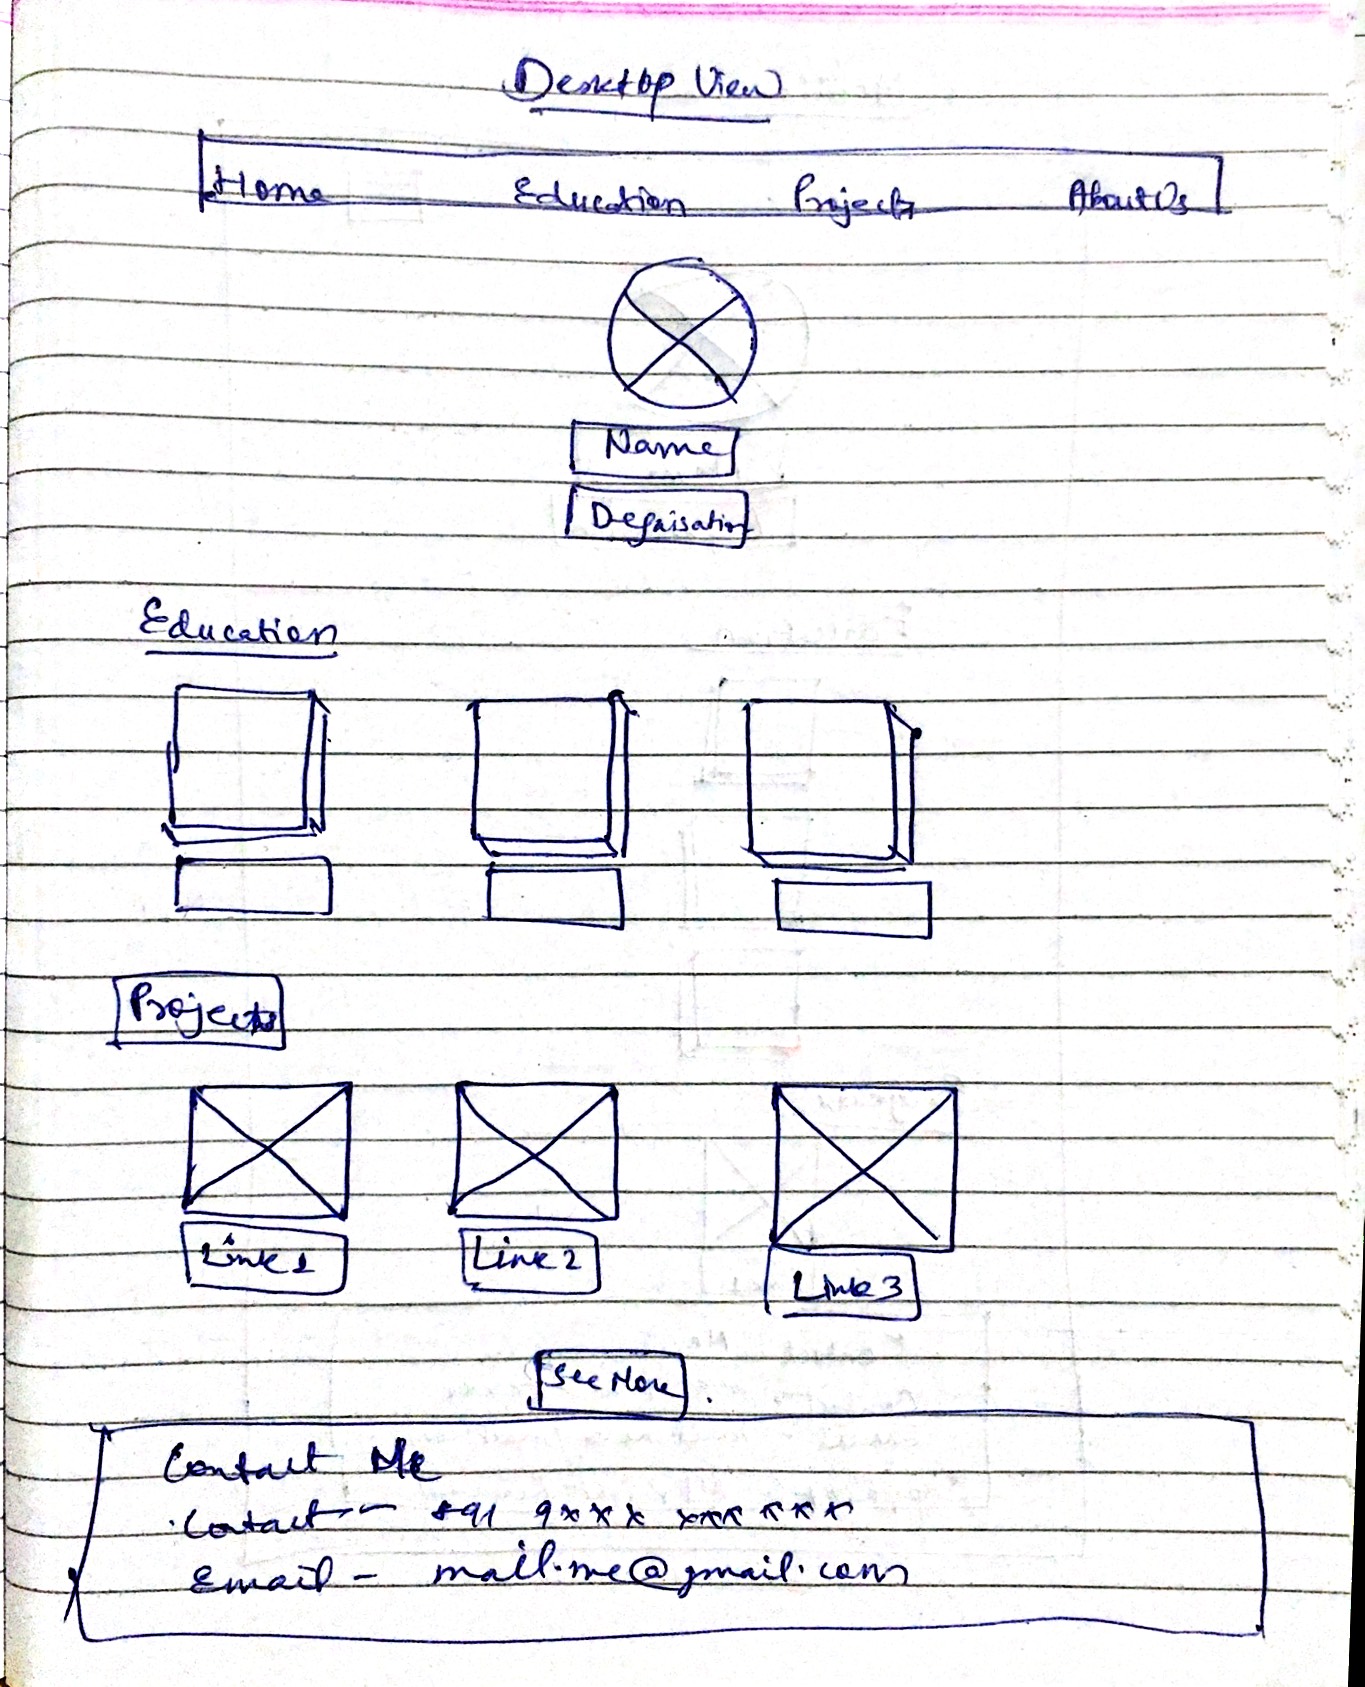 Desktop View
Home Education Projects About Us
Name
Degaisation
Education
Projects
Link 1 Link 2 Link 3
See More
Contact Me
Contact - +91 9*** *** ***
Email - mail.me@gmail.com